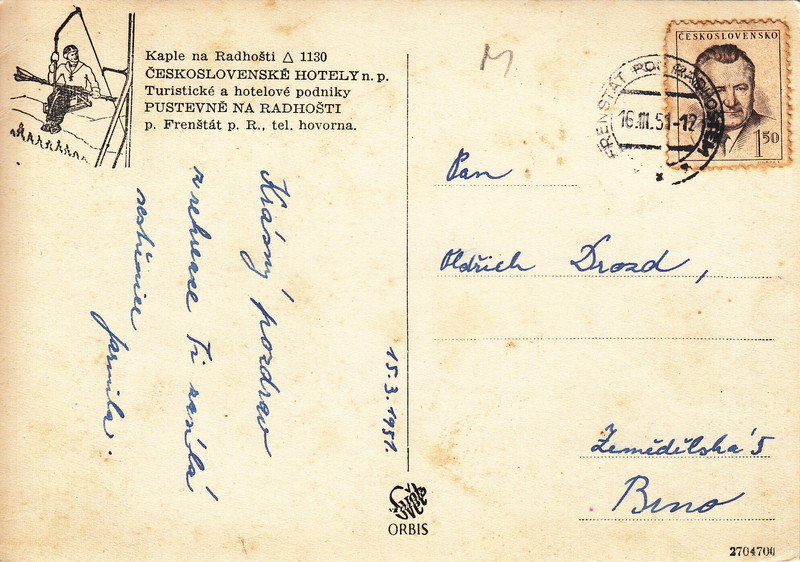 Kaple na Radhošti △ 1130
ČESKOSLOVENSKÉ HOTELY n. p.
Turistické a hotelové podniky
PUSTEVNĚ NA RADHOŠTI
p. Frenštát p. R., tel. hovorna.
Krásný pozdrav
z rekreace Ti zasílá
sestřenice
Jarmila.
15.3.1951.
M
ČESKOSLOVENSKO
1.50
FRENŠTÁT POD RADHOŠTĚM
16.III.51-12
Pan
Oldřich Drozd,
Zemědělská 5
Brno
ORBIS
2704700